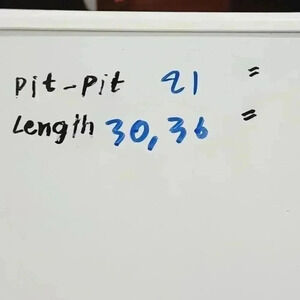 Pit-Pit 21 "
Length 30,36 "